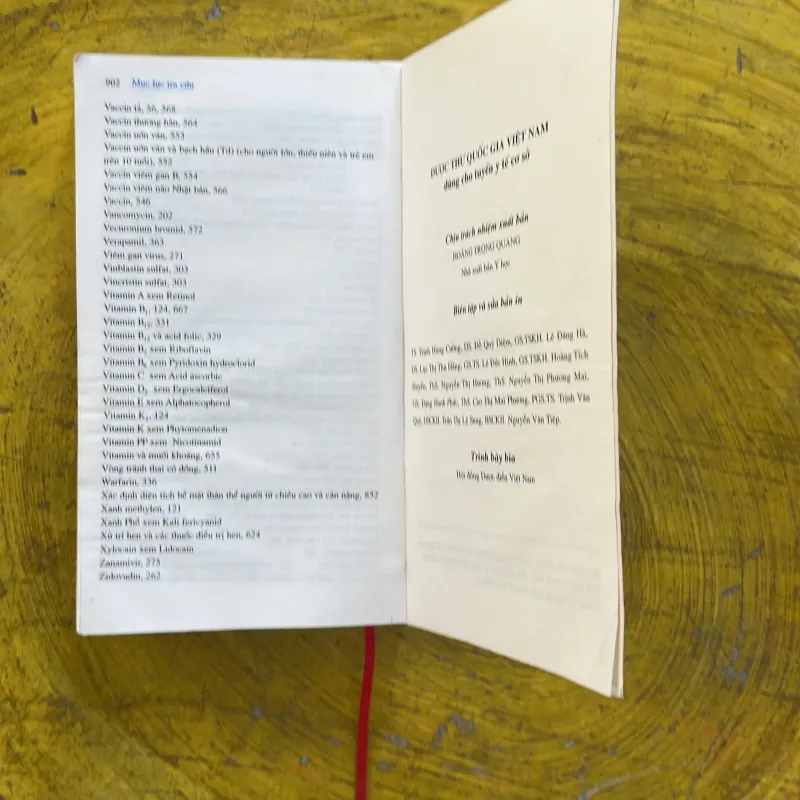 902 Mục lục tra cứu
Vaccin tả, 56, 568
Vaccin thương hàn, 564
Vaccin uốn ván, 553
Vaccin uốn ván và bạch hầu (Td) (cho người lớn, thiếu niên và trẻ em
trên 10 tuổi), 552
Vaccin viêm gan B, 554
Vaccin viêm não Nhật bản, 566
Vaccin, 546
Vancomycin, 202
Vecuronium bromid, 572
Verapamil, 363
Viêm gan virus, 271
Vinblastin sulfat, 303
Vincristin sulfat, 303
Vitamin A xem Retinol
Vitamin B₁, 124, 667
Vitamin B₁₂, 331
Vitamin B₁₂ và acid folic, 329
Vitamin B₂ xem Riboflavin
Vitamin B₆ xem Pyridoxin hydroclorid
Vitamin C xem Acid ascorbic
Vitamin D₂ xem Ergocalciferol
Vitamin E xem Alphatocopherol
Vitamin K₁, 124
Vitamin K xem Phytomenadion
Vitamin PP xem Nicotinamid
Vitamin và muối khoáng, 655
Vòng tránh thai có đồng, 511
Warfarin, 336
Xác định diện tích bề mặt thân thể người từ chiều cao và cân nặng, 852
Xanh methylen, 121
Xanh Phổ xem Kali fericyanid
Xử trí hen và các thuốc điều trị hen, 624
Xylocain xem Lidocain
Zanamivir, 275
Zidovudin, 262
DƯỢC THƯ QUỐC GIA VIỆT NAM
dùng cho tuyến y tế cơ sở
Chịu trách nhiệm xuất bản
HOÀNG TRỌNG QUANG
Nhà xuất bản Y học
Biên tập và sửa bản in
TS. Trịnh Hồng Cường, DS. Đỗ Quý Diệm, GS.TSKH. Lê Đăng Hà,
DS. Lưu Thị Thu Hằng, GS.TS. Lê Đức Hinh, GS.TSKH. Hoàng Tích
Huyền, ThS. Nguyễn Thị Hương, ThS. Nguyễn Thị Phương Mai,
GS. Đặng Hanh Phức, ThS. Cao Thị Mai Phương, PGS.TS. Trịnh Văn
Quỳ, DSCKII. Trần Thị Lê Song, BSCKII. Nguyễn Văn Tiệp.
Trình bày bìa
Hội đồng Dược điển Việt Nam